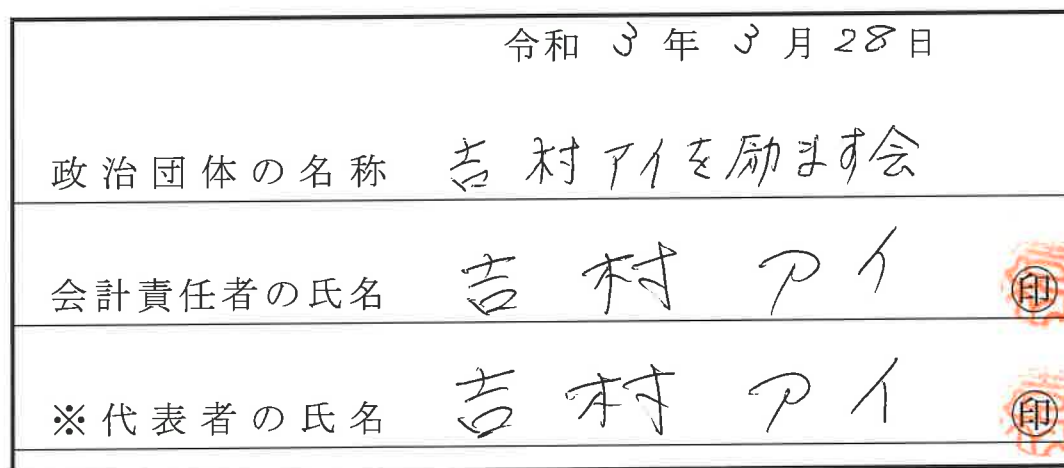 令和 3 年 3 月 28 日
政治団体の名称 吉村アイを励ます会
会計責任者の氏名 吉村 アイ ㊞
※代表者の氏名 吉村 アイ ㊞